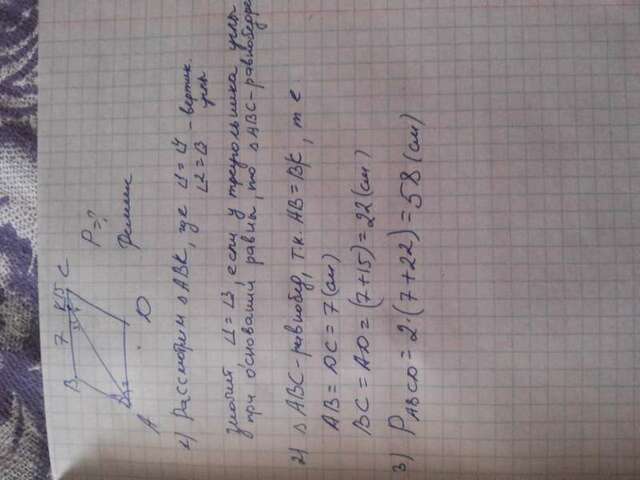 B 7 K 15 C
A D
P = ?
Решение
1) Рассмотрим △ABK, где ∠1 = ∠4 - вертик.
∠2 = ∠3 углы
значит, ∠1 = ∠3, если у треугольника углы
при основании равны, то △ABC - равнобедре
2) △ABC - равнобед, т.к. AB = BK, т е
AB = DC = 7 (см)
BC = AD = (7+15) = 22 (см)
3) P ABCD = 2·(7+22) = 58 (см)